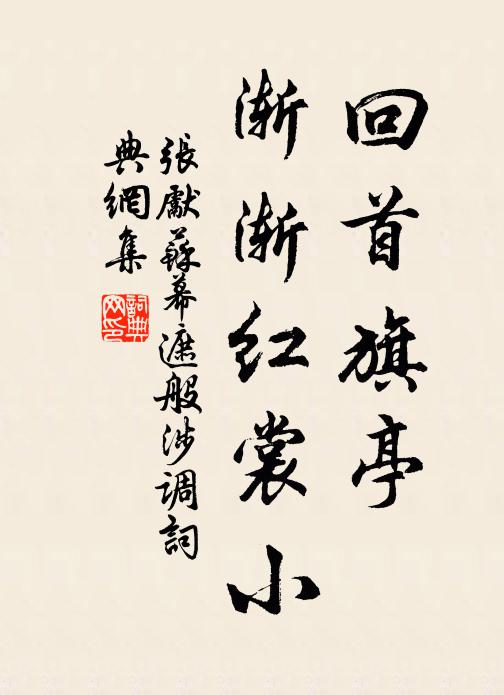 回首旗亭
渐渐红裳小
張獻蘇幕遮般涉调詞
典網集
詞典网印